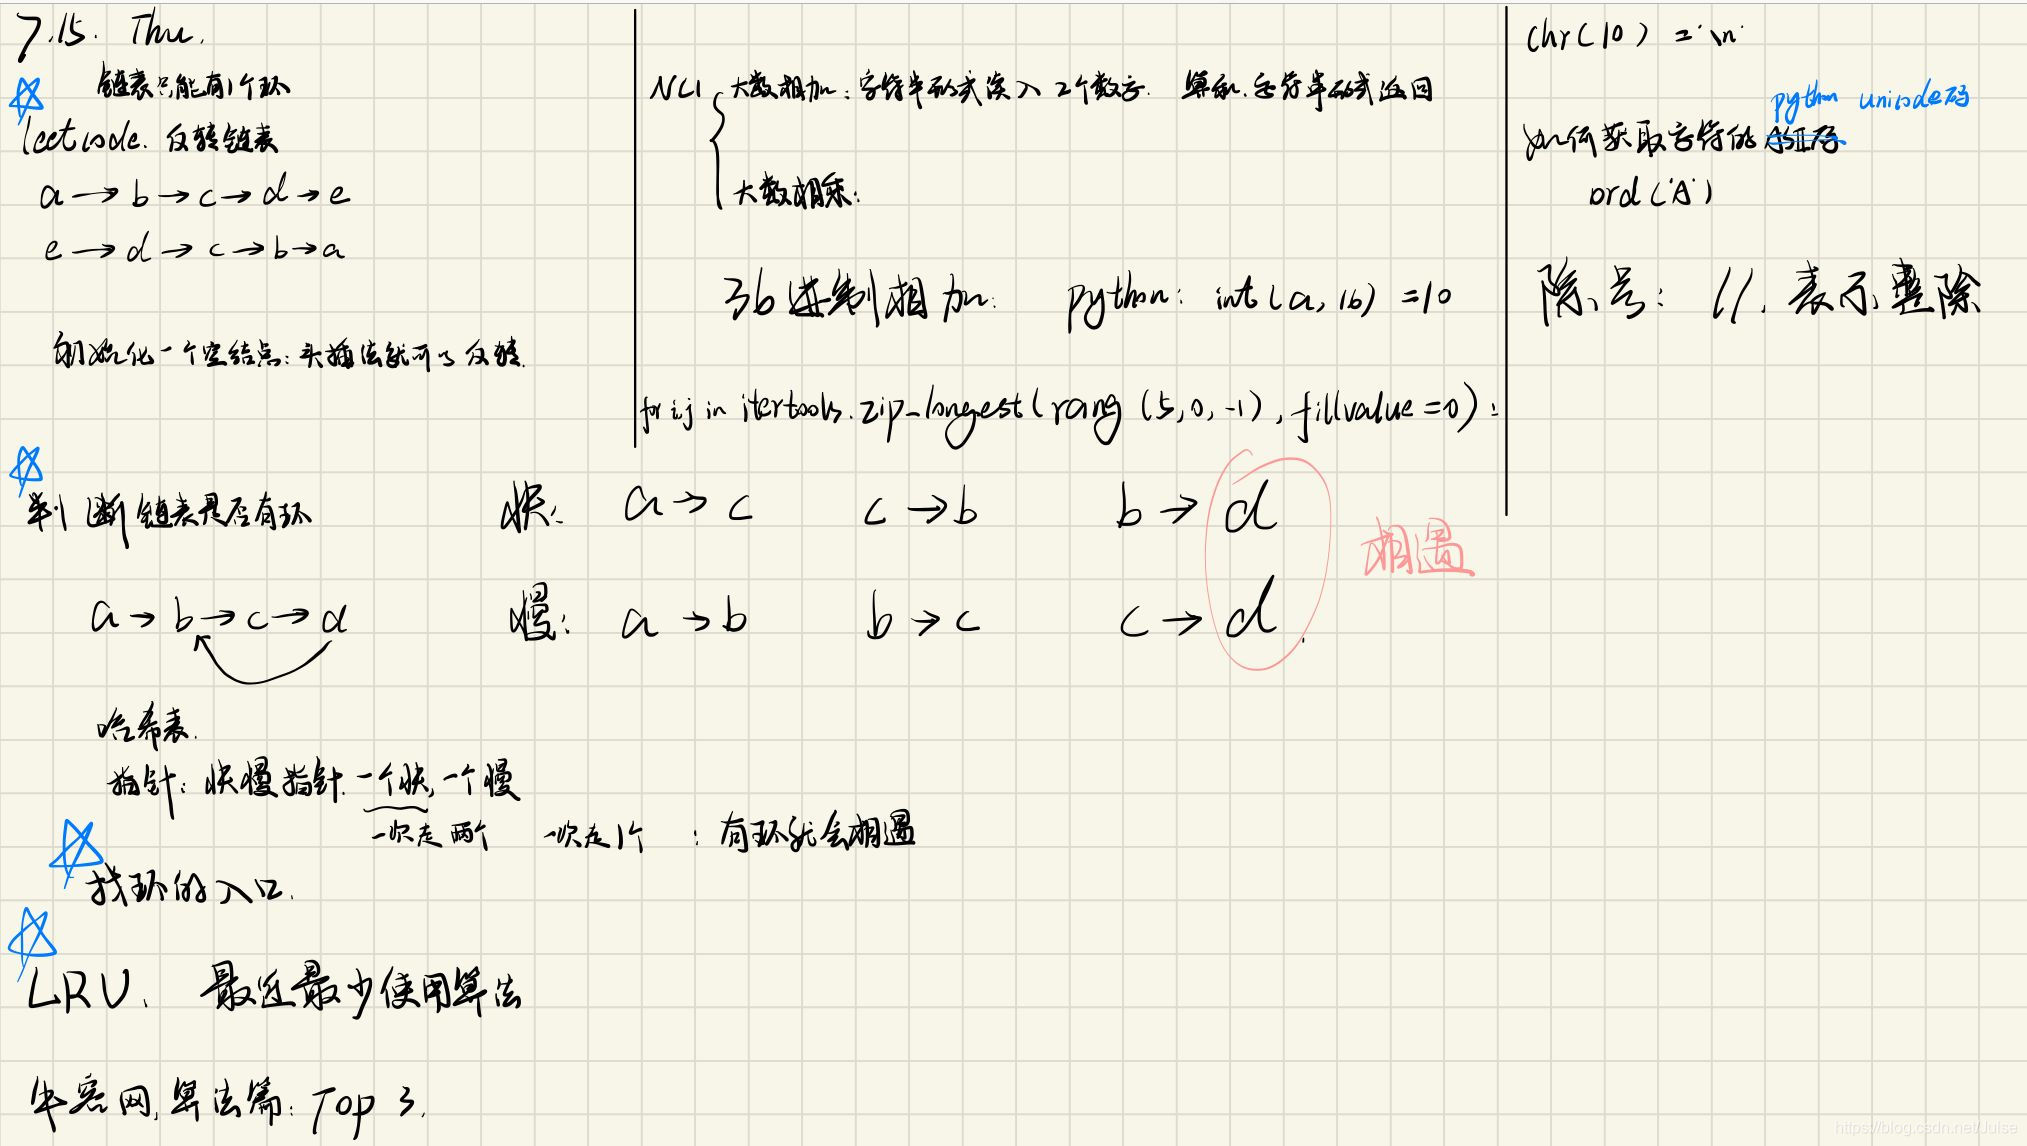 7.15. Thu.
链表只能有1个环
leetcode. 反转链表
a → b → c → d → e
e → d → c → b → a
初始化一个空结点: 头插法就可以反转.
NC1 大数相加: 字符串形式读入 2个数字. 算和. 字符串形式返回
大数相乘:
36进制相加: python: int(a, 16) = 10
for i,j in itertools.zip_longest(rang (5,0,-1), fillvalue=0):
chr(10) = '\n'
python unicode码
如何获取字符的
ord('A')
除号: //. 表示整除
判断链表是否有环
快: a → c c → b b → d
相遇
a → b → c → d
慢: a → b b → c c → d
哈希表.
指针: 快慢指针. 一个快, 一个慢
一次走两个 一次走1个 : 有环就会相遇
找环的入口.
LRU. 最近最少使用算法
牛客网, 算法篇: Top 3.
https://blog.csdn.net/Julse